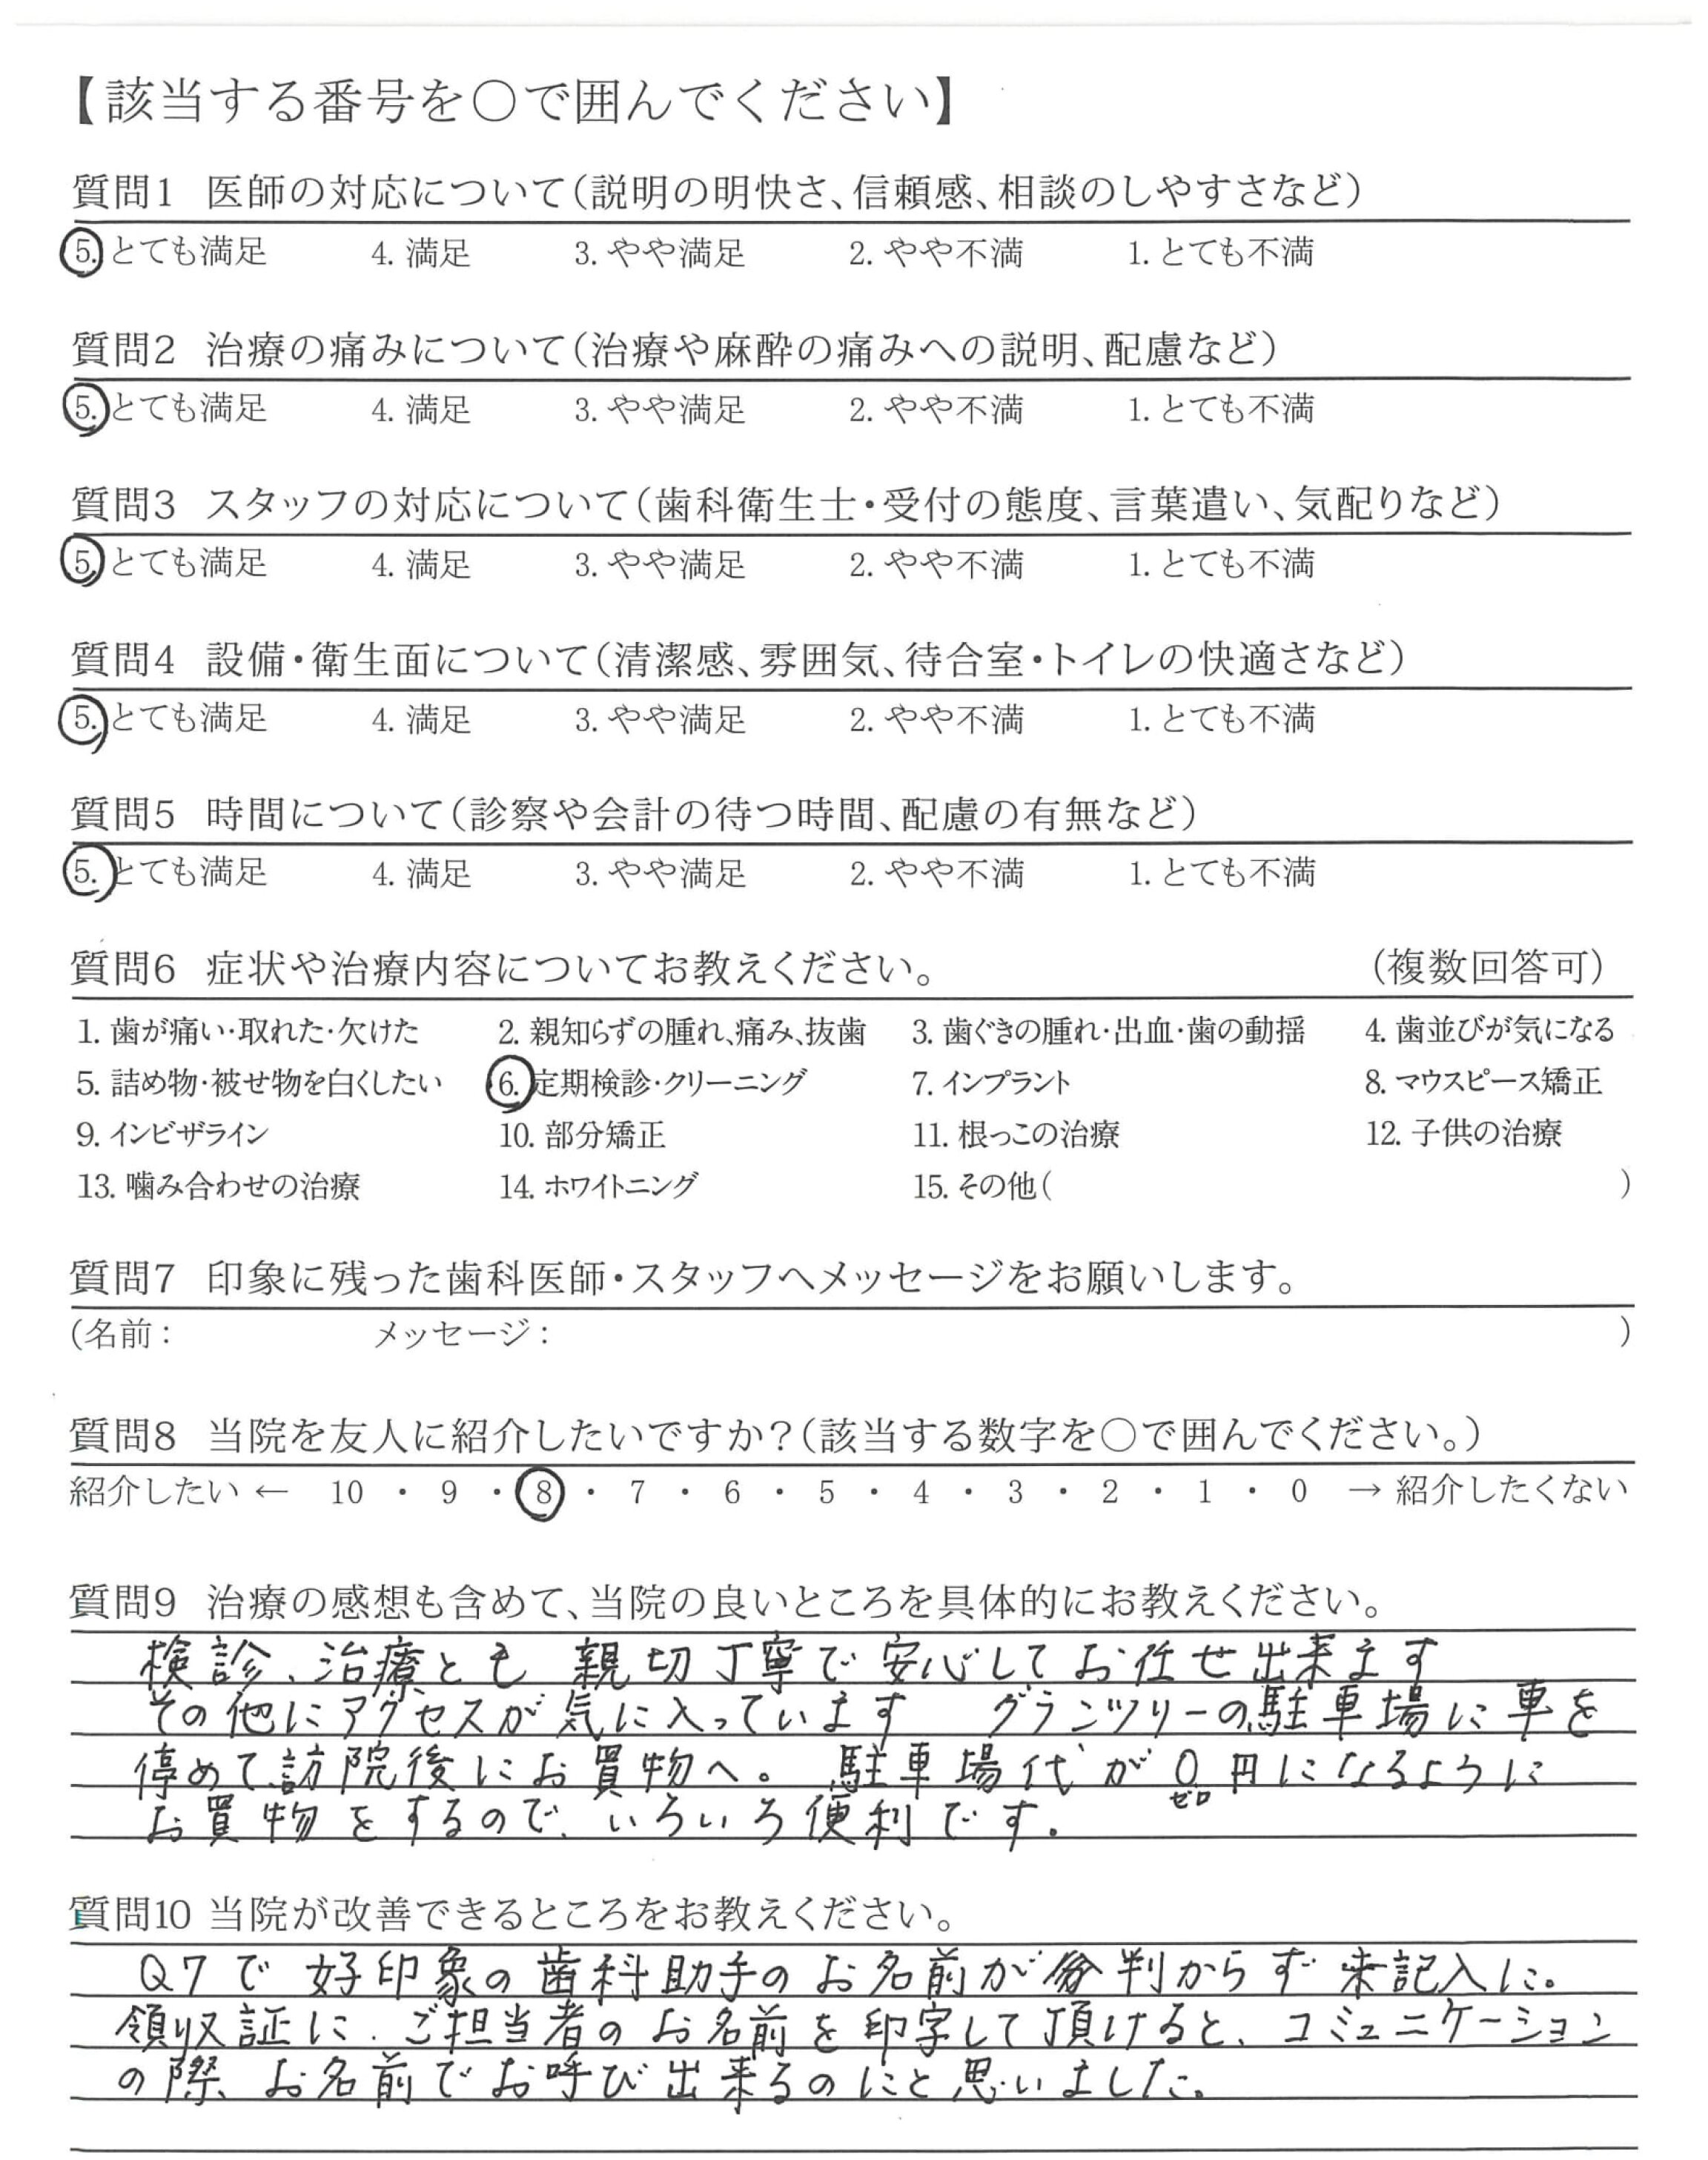 【該当する番号を○で囲んでください】
質問1 医師の対応について(説明の明快さ、信頼感、相談のしやすさなど)
5. とても満足 4. 満足 3. やや満足 2. やや不満 1. とても不満
質問2 治療の痛みについて(治療や麻酔の痛みへの説明、配慮など)
5. とても満足 4. 満足 3. やや満足 2. やや不満 1. とても不満
質問3 スタッフの対応について(歯科衛生士・受付の態度、言葉遣い、気配りなど)
5. とても満足 4. 満足 3. やや満足 2. やや不満 1. とても不満
質問4 設備・衛生面について(清潔感、雰囲気、待合室・トイレの快適さなど)
5. とても満足 4. 満足 3. やや満足 2. やや不満 1. とても不満
質問5 時間について(診察や会計の待つ時間、配慮の有無など)
5. とても満足 4. 満足 3. やや満足 2. やや不満 1. とても不満
質問6 症状や治療内容についてお教えください。 (複数回答可)
1. 歯が痛い・取れた・欠けた 2. 親知らずの腫れ、痛み、抜歯 3. 歯ぐきの腫れ・出血・歯の動揺 4. 歯並びが気になる
5. 詰め物・被せ物を白くしたい 6. 定期検診・クリーニング 7. インプラント 8. マウスピース矯正
9. インビザライン 10. 部分矯正 11. 根っこの治療 12. 子供の治療
13. 噛み合わせの治療 14. ホワイトニング 15. その他( )
質問7 印象に残った歯科医師・スタッフへメッセージをお願いします。
(名前: メッセージ: )
質問8 当院を友人に紹介したいですか?(該当する数字を○で囲んでください。)
紹介したい ← 10 ・ 9 ・ 8 ・ 7 ・ 6 ・ 5 ・ 4 ・ 3 ・ 2 ・ 1 ・ 0 → 紹介したくない
質問9 治療の感想も含めて、当院の良いところを具体的にお教えください。
検診、治療とも 親切丁寧で安心してお任せ出来ます
その他にアクセスが気に入っています グランツリーの駐車場に車を
停めて訪院後にお買物へ。駐車場代が0円になるように
ゼロ
お買物をするので、いろいろ便利です.
質問10 当院が改善できるところをお教えください。
Q7で好印象の歯科助手のお名前が判からず 未記入に。
領収証に、ご担当者のお名前を印字して頂けると、コミュニケーション
の際、お名前でお呼び出来るのにと思いました。